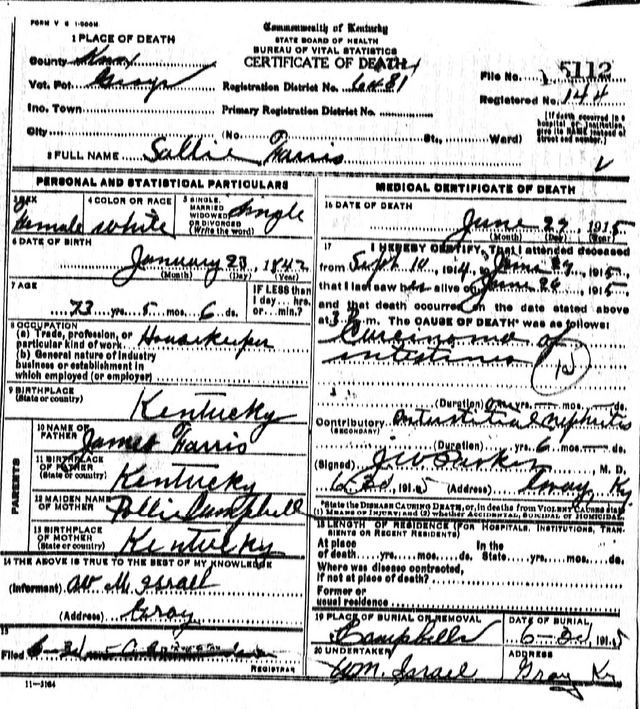 FORM V S 1-500M.
Commonwealth of Kentucky
STATE BOARD OF HEALTH
BUREAU OF VITAL STATISTICS
CERTIFICATE OF DEATH
1 PLACE OF DEATH
County Knox
Vot. Pct. Grays
Inc. Town
City
Registration District No. 6481
Primary Registration District No.
(No. St., Ward)
File No. 15112
Registered No. 144
[If death occurred in a hospital or institution, give its NAME instead of street and number.]
2 FULL NAME Sallie Farris
PERSONAL AND STATISTICAL PARTICULARS
3 SEX Female
4 COLOR OR RACE white
5 SINGLE, MARRIED WIDOWED OR DIVORCED (Write the word) Single
6 DATE OF BIRTH
January 23, 1842
(Month) (Day) (Year)
7 AGE
73 yrs. 5 mos. 6 ds.
IF LESS than 1 day... hrs. or... min.?
8 OCCUPATION
(a) Trade, profession, or particular kind of work Housekeeper
(b) General nature of industry
business or establishment in
which employed (or employer)
9 BIRTHPLACE
(State or country) Kentucky
PARENTS
10 NAME OF FATHER James Farris
11 BIRTHPLACE OF FATHER (State or country) Kentucky
12 MAIDEN NAME OF MOTHER Pollie Campbell
13 BIRTHPLACE OF MOTHER (State or country) Kentucky
14 THE ABOVE IS TRUE TO THE BEST OF MY KNOWLEDGE
(Informant) W M. Israel
(Address) Gray
15
Filed
REGISTRAR
11-3184
MEDICAL CERTIFICATE OF DEATH
16 DATE OF DEATH
June 29, 1915
(Month) (Day) (Year)
17 I HEREBY CERTIFY, That I attended deceased
from Sept 10 1914, to June 29, 1915
that I last saw h alive on June 26, 1915
and that death occurred on the date stated above
at 3 P. m. The CAUSE OF DEATH* was as follows:
Carcinoma of
intestines
(Duration) yrs. mos. ds.
Contributory Interstitial nephritis
(SECONDARY)
(Duration) yrs. 6 mos. ds.
(Signed) J W Parker M. D.
1915 (Address) Gray, Ky
*State the DISEASE CAUSING DEATH, or, in deaths from VIOLENT CAUSES state
(1) MEANS OF INJURY; and (2) whether ACCIDENTAL, SUICIDAL or HOMICIDAL.
18 LENGTH OF RESIDENCE (FOR HOSPITALS, INSTITUTIONS, TRANSIENTS OR RECENT RESIDENTS)
At place of death yrs. mos. ds. In the State yrs. mos. ds.
Where was disease contracted,
if not at place of death?
Former or
usual residence
19 PLACE OF BURIAL OR REMOVAL
Campbells
DATE OF BURIAL
1915
20 UNDERTAKER
WM. Israel
ADDRESS
Gray Ky